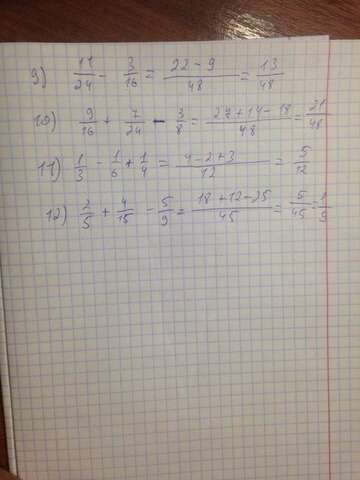 9) 11/24 - 3/16 = (22-9)/48 = 13/48
10) 9/16 + 7/24 - 3/8 = (27+14-18)/48 = 21/48
11) 1/3 - 1/6 + 1/4 = (4-2+3)/12 = 5/12
12) 2/5 + 4/15 - 5/9 = (18+12-25)/45 = 5/45 = 1/9